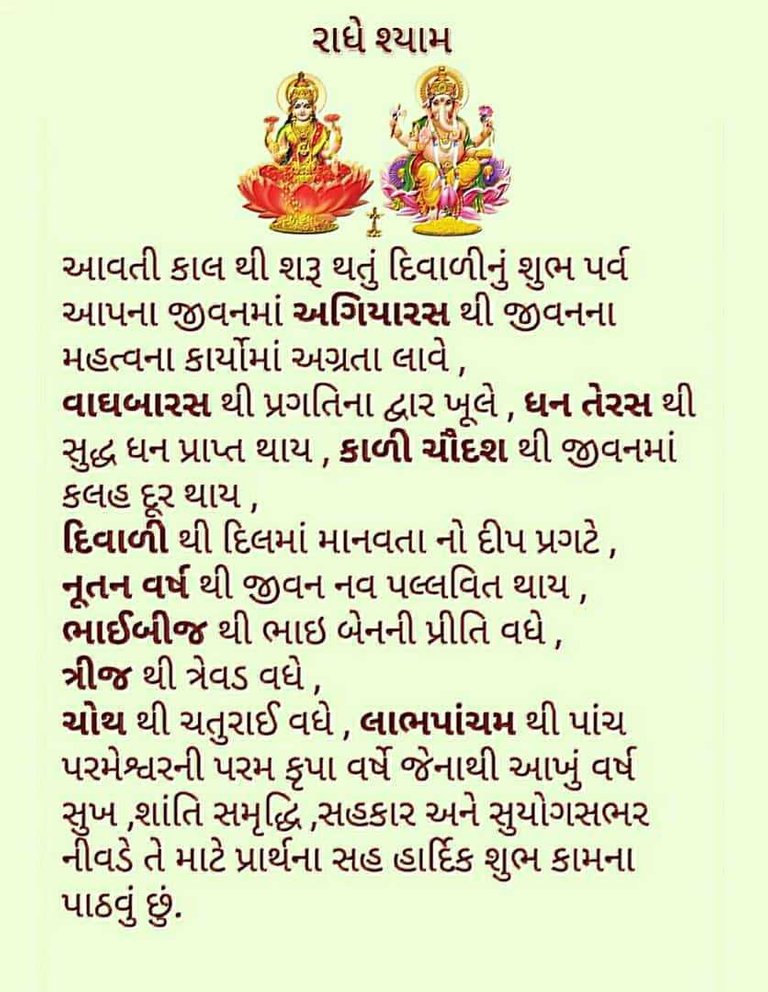 રાધે શ્યામ
આવતી કાલ થી શરૂ થતું દિવાળીનું શુભ પર્વ
આપના જીવનમાં અગિયારસ થી જીવનના
મહત્વના કાર્યોમાં અગ્રતા લાવે ,
વાઘબારસ થી પ્રગતિના દ્વાર ખૂલે , ધન તેરસ થી
સુદ્ધ ધન પ્રાપ્ત થાય , કાળી ચૌદશ થી જીવનમાં
કલહ દૂર થાય ,
દિવાળી થી દિલમાં માનવતા નો દીપ પ્રગટે ,
નૂતન વર્ષ થી જીવન નવ પલ્લવિત થાય ,
ભાઈબીજ થી ભાઇ બેનની પ્રીતિ વધે ,
ત્રીજ થી ત્રેવડ વધે ,
ચોથ થી ચતુરાઈ વધે , લાભપાંચમ થી પાંચ
પરમેશ્વરની પરમ કૃપા વર્ષે જેનાથી આખું વર્ષ
સુખ ,શાંતિ સમૃદ્ધિ ,સહકાર અને સુયોગસભર
નીવડે તે માટે પ્રાર્થના સહ હાર્દિક શુભ કામના
પાઠવું છું.